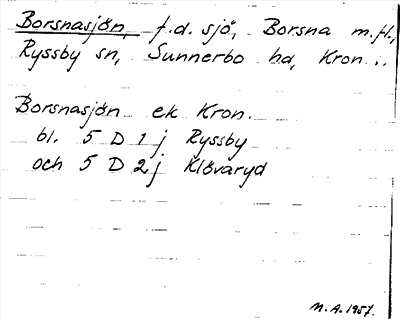 Borsnasjön, f.d. sjö, Borsna m.fl.,
Ryssby sn, Sunnerbo hd, Kron..
Borsnasjön ek Kron.
bl. 5 D 1 j Ryssby
och 5 D 2 j Klövaryd
M.A. 1957.